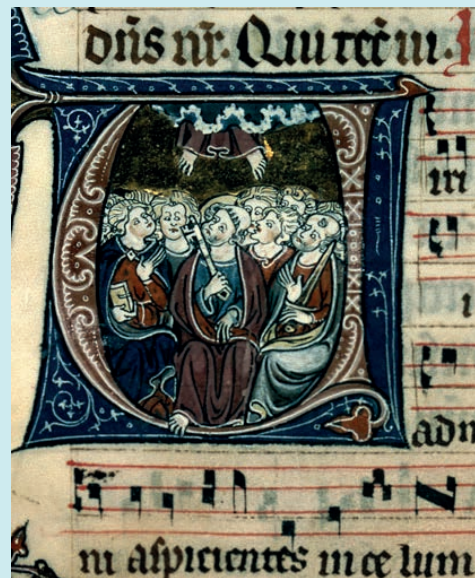 dn̄s nr̄. Qui tec̄
Uiri
i
adm
ni aspicientes in ce lum